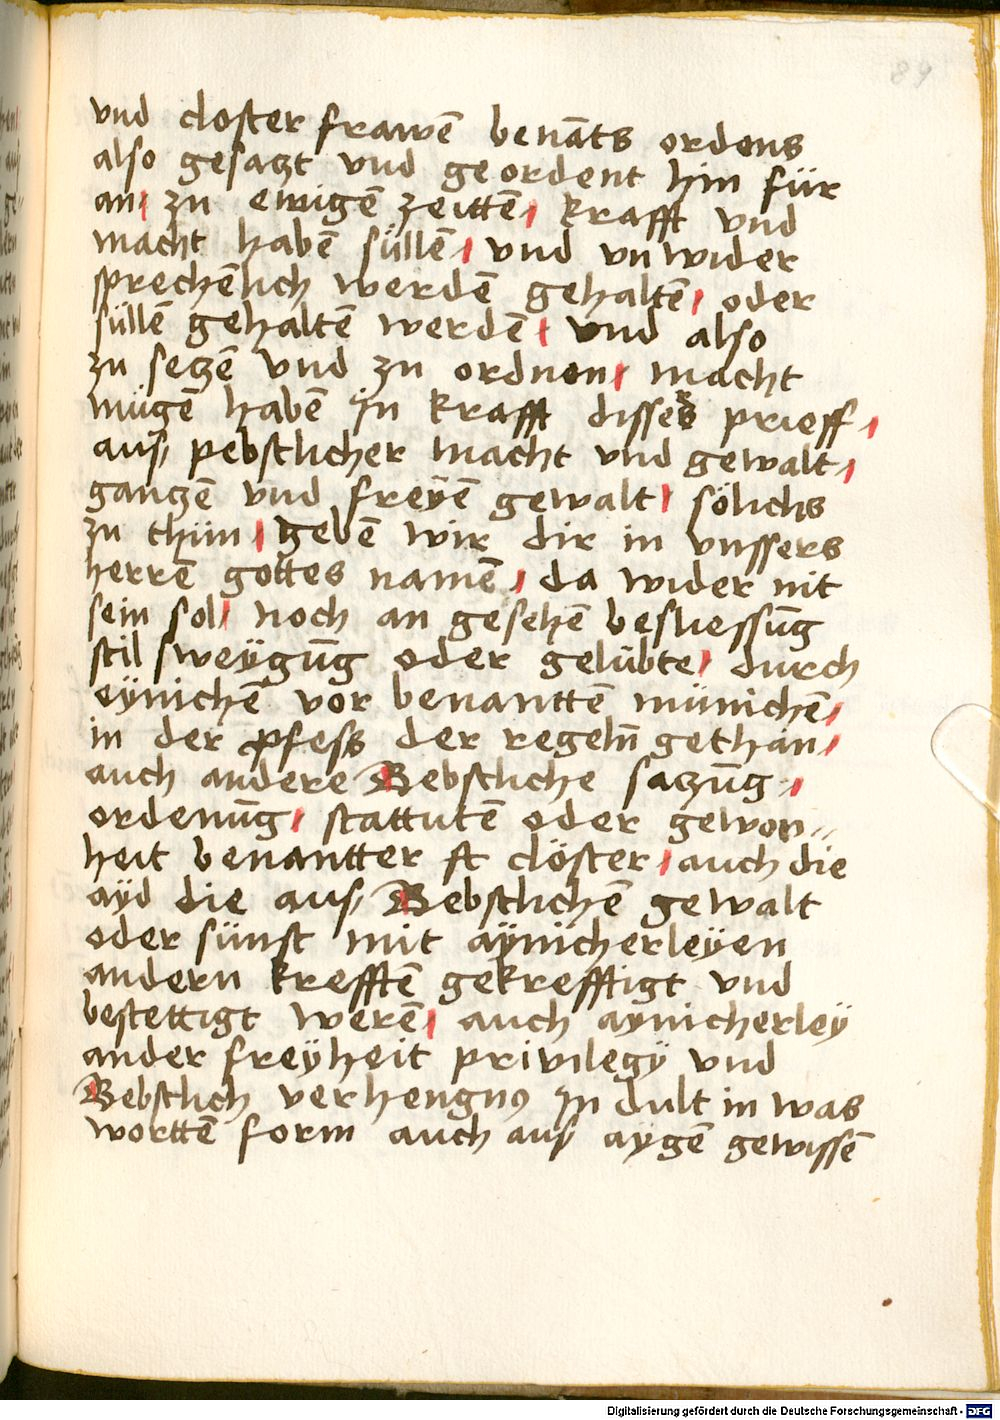 89
vnd closter frawē benāts ordens
also gesatzt vnd geordent hin für
an / zu ewigē zeittē / krafft vnd
macht habē süllē / vnd vn wider
sprechēlich werdē gehaltē / oder
süllē gehaltē werdē / vnd also
zu seczē vnd zu ordnen / macht
mügē habē in krafft disses prieff /
aus pebstlicher macht vnd gewalt /
ganczē vnd freyē gewalt / sölichs
zu thün / gebē wir dir in vnssers
herrē gottes namē / da wider nit
sein sol / noch an gesehē besliessūg
stil sweÿgūg oder gelübte / durch
eÿnichē vor benanttē münichē /
in der pfess der regeln̄ gethan /
auch andere Bebstliche saczūg /
ordenūg / stattutē oder gewon〃
heit benantter st clöster / auch die
aÿd die aus Bebstlichē gewalt
oder sünst mit aÿnicherleÿen
andern krefftē gekrefftigt vnd
bestettigt werē / auch aynicherleÿ
ander freÿheit privilegÿ vnd
Bebstlich verhengnꝰ In dult in was
worttē form auch aus aÿgē gewissē
Digitalisierung gefördert durch die Deutsche Forschungsgemeinschaft - DFG